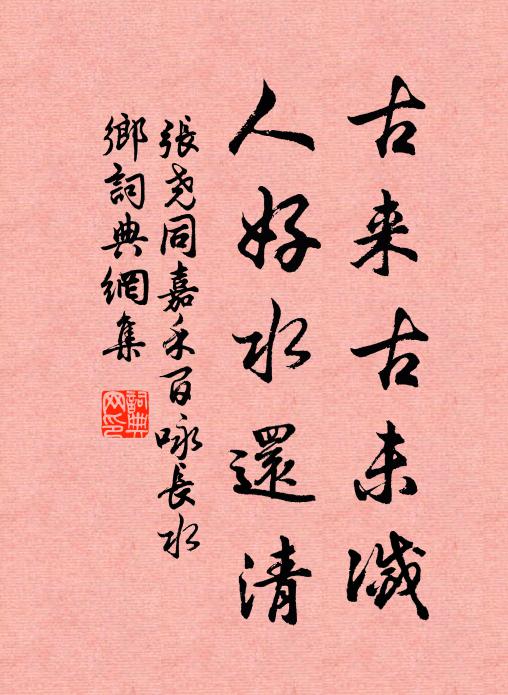 古来古未滅
人好水還清
張尭同嘉禾百咏長水
鄉詞典網集
詞典
网印